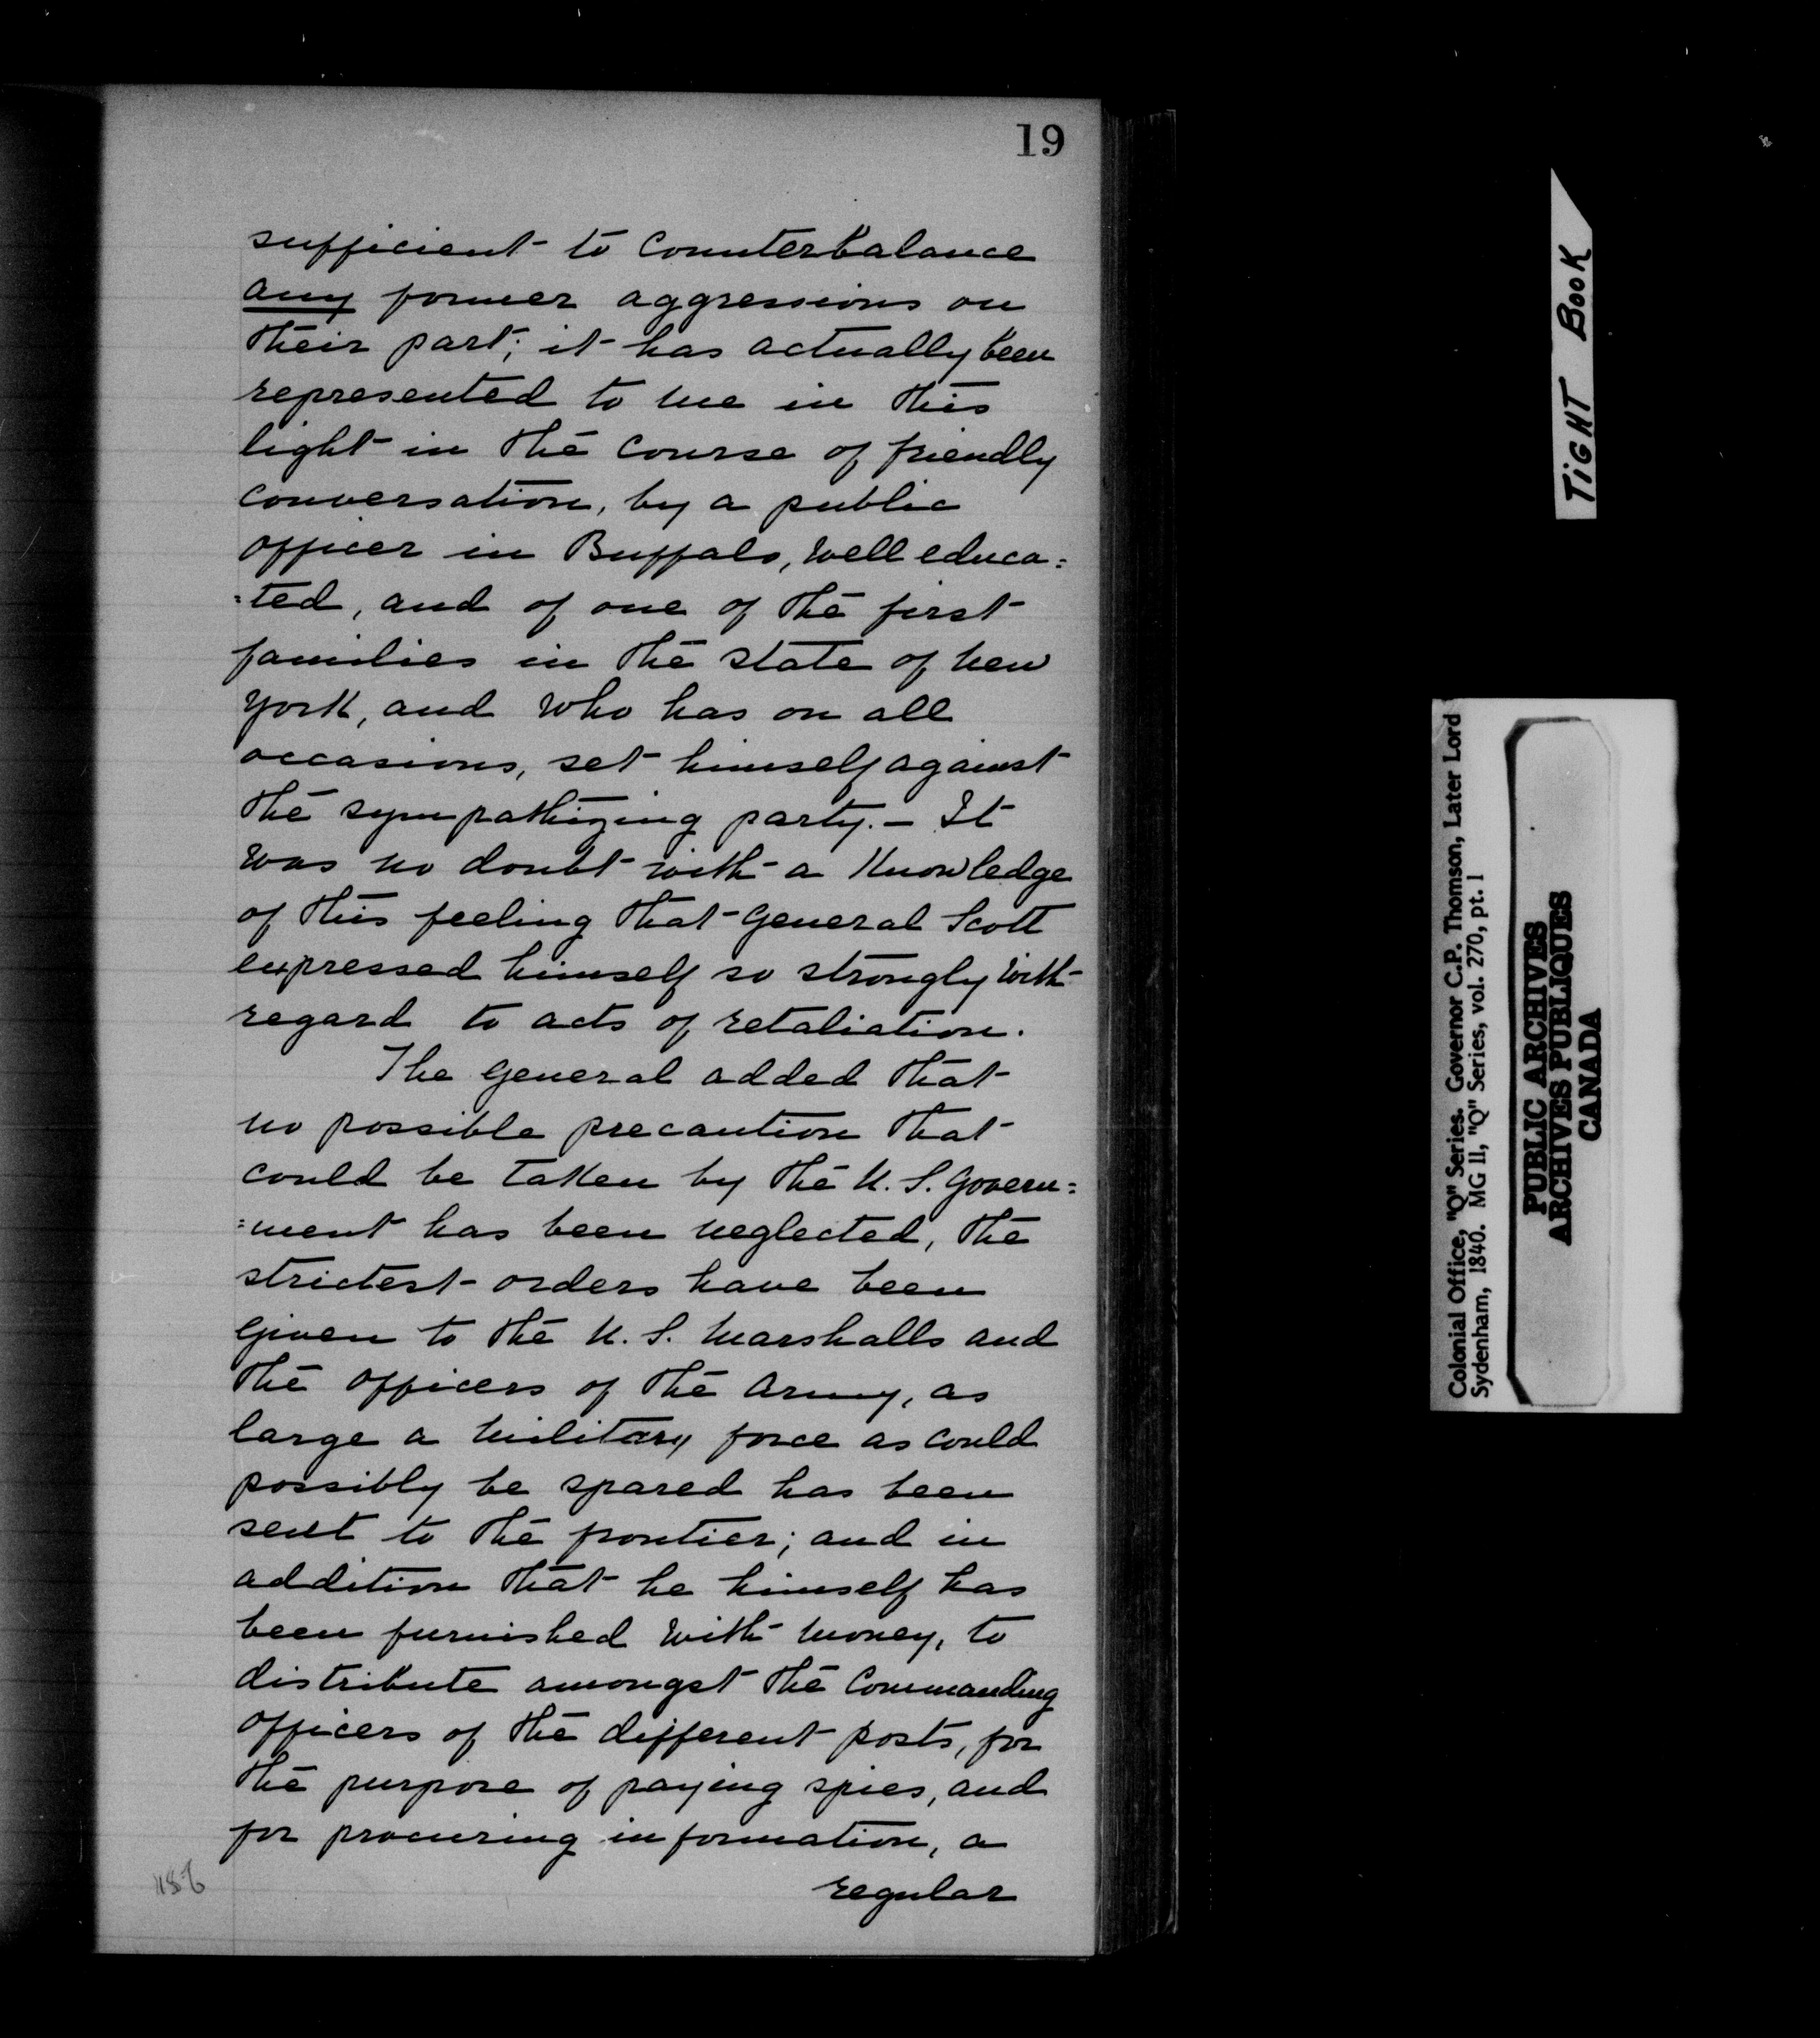 19
sufficient to counterbalance
any former aggressions on
their part; it has actually been
represented to me in this
light in the course of friendly
conversation, by a public
officer in Buffalo, well educa:
:ted, and of one of the first
families in the state of New
York, and who has on all
occasions, set himself against
the sympathizing party. – It
was no doubt with a knowledge
of this feeling that General Scott
expressed himself so strongly with
regard to acts of retaliation.
The General added that
no possible precaution that
could be taken by the U. S. Govern:
:ment has been neglected, the
strictest orders have been
given to the U. S. Marshalls and
the officers of the Army, as
large a military force as could
possibly be spared has been
sent to the frontier; and in
addition that he himself has
been furnished with money, to
distribute amongst the Commanding
officers of the different posts, for
the purpose of paying spies, and
for procuring information, a
regular
TIGHT BOOK
Colonial Office, "Q" Series. Governor C.P. Thomson, Later Lord
Sydenham, 1840. MG 11, "Q" Series, vol. 270, pt. 1
PUBLIC ARCHIVES
ARCHIVES PUBLIQUES
CANADA